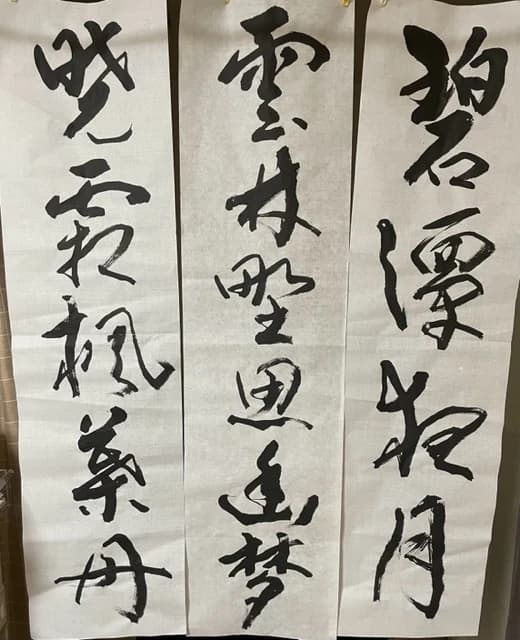 碧潭夜月
雲林野思幽夢
曉霜楓葉丹